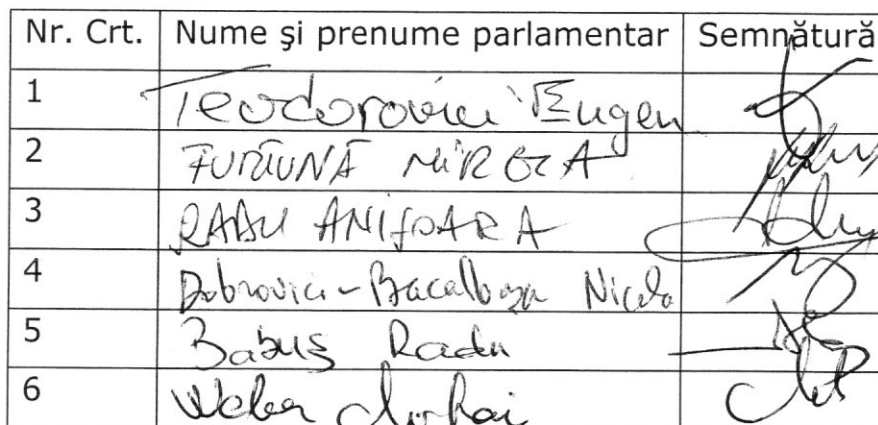 Nr. Crt. Nume și prenume parlamentar Semnătură
1 Teodorovici Eugen
2 FURTUNĂ MIRCEA
3 RADU ANIȘOARA
4 Dobrovici-Bacalbașa Nicolae
5 Babuș Radu
6 Weber Mihai